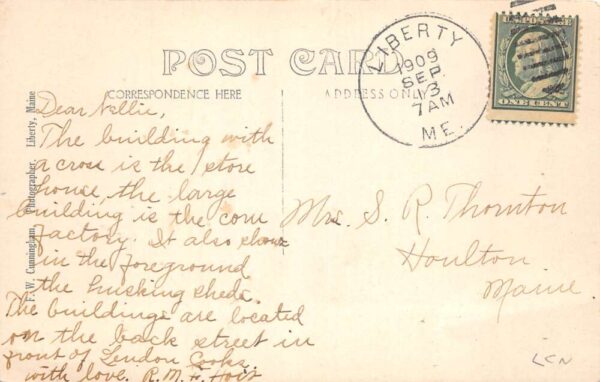 POST CARD
CORRESPONDENCE HERE
ADDRESS ONLY
F. W. Cunningham, Photographer, Liberty, Maine
LIBERTY
1909
SEP
13
7AM
ME.
ONE CENT
Dear Nellie,
The building with
a cross is the store
house, the large
building is the corn
factory. It also shows
in the foreground
the husking sheds.
The buildings are located
on the back street in
front of Lendon Cooks
with love. R. M. F. Hoit
Mrs. S. R. Thornton
Houlton
Maine
LCN